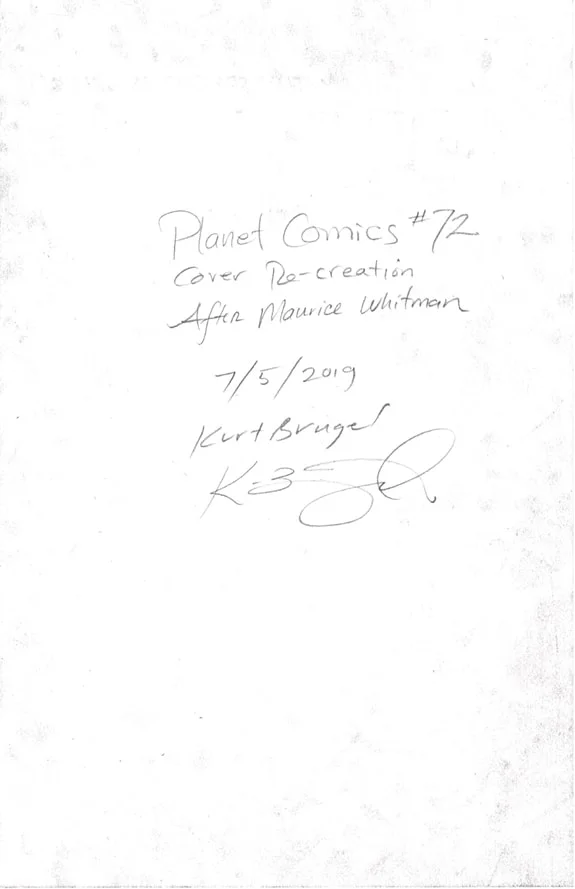 Planet Comics #72
Cover Re-creation
After Maurice Whitman
7/5/2019
Kurt Brugel